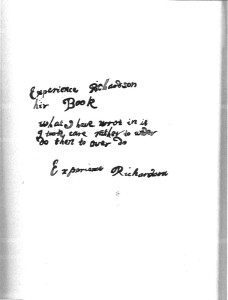 Experience Richardson
hir Book
what I have wrot in it
I took care rather to under
do then to over do
Experience Richardson